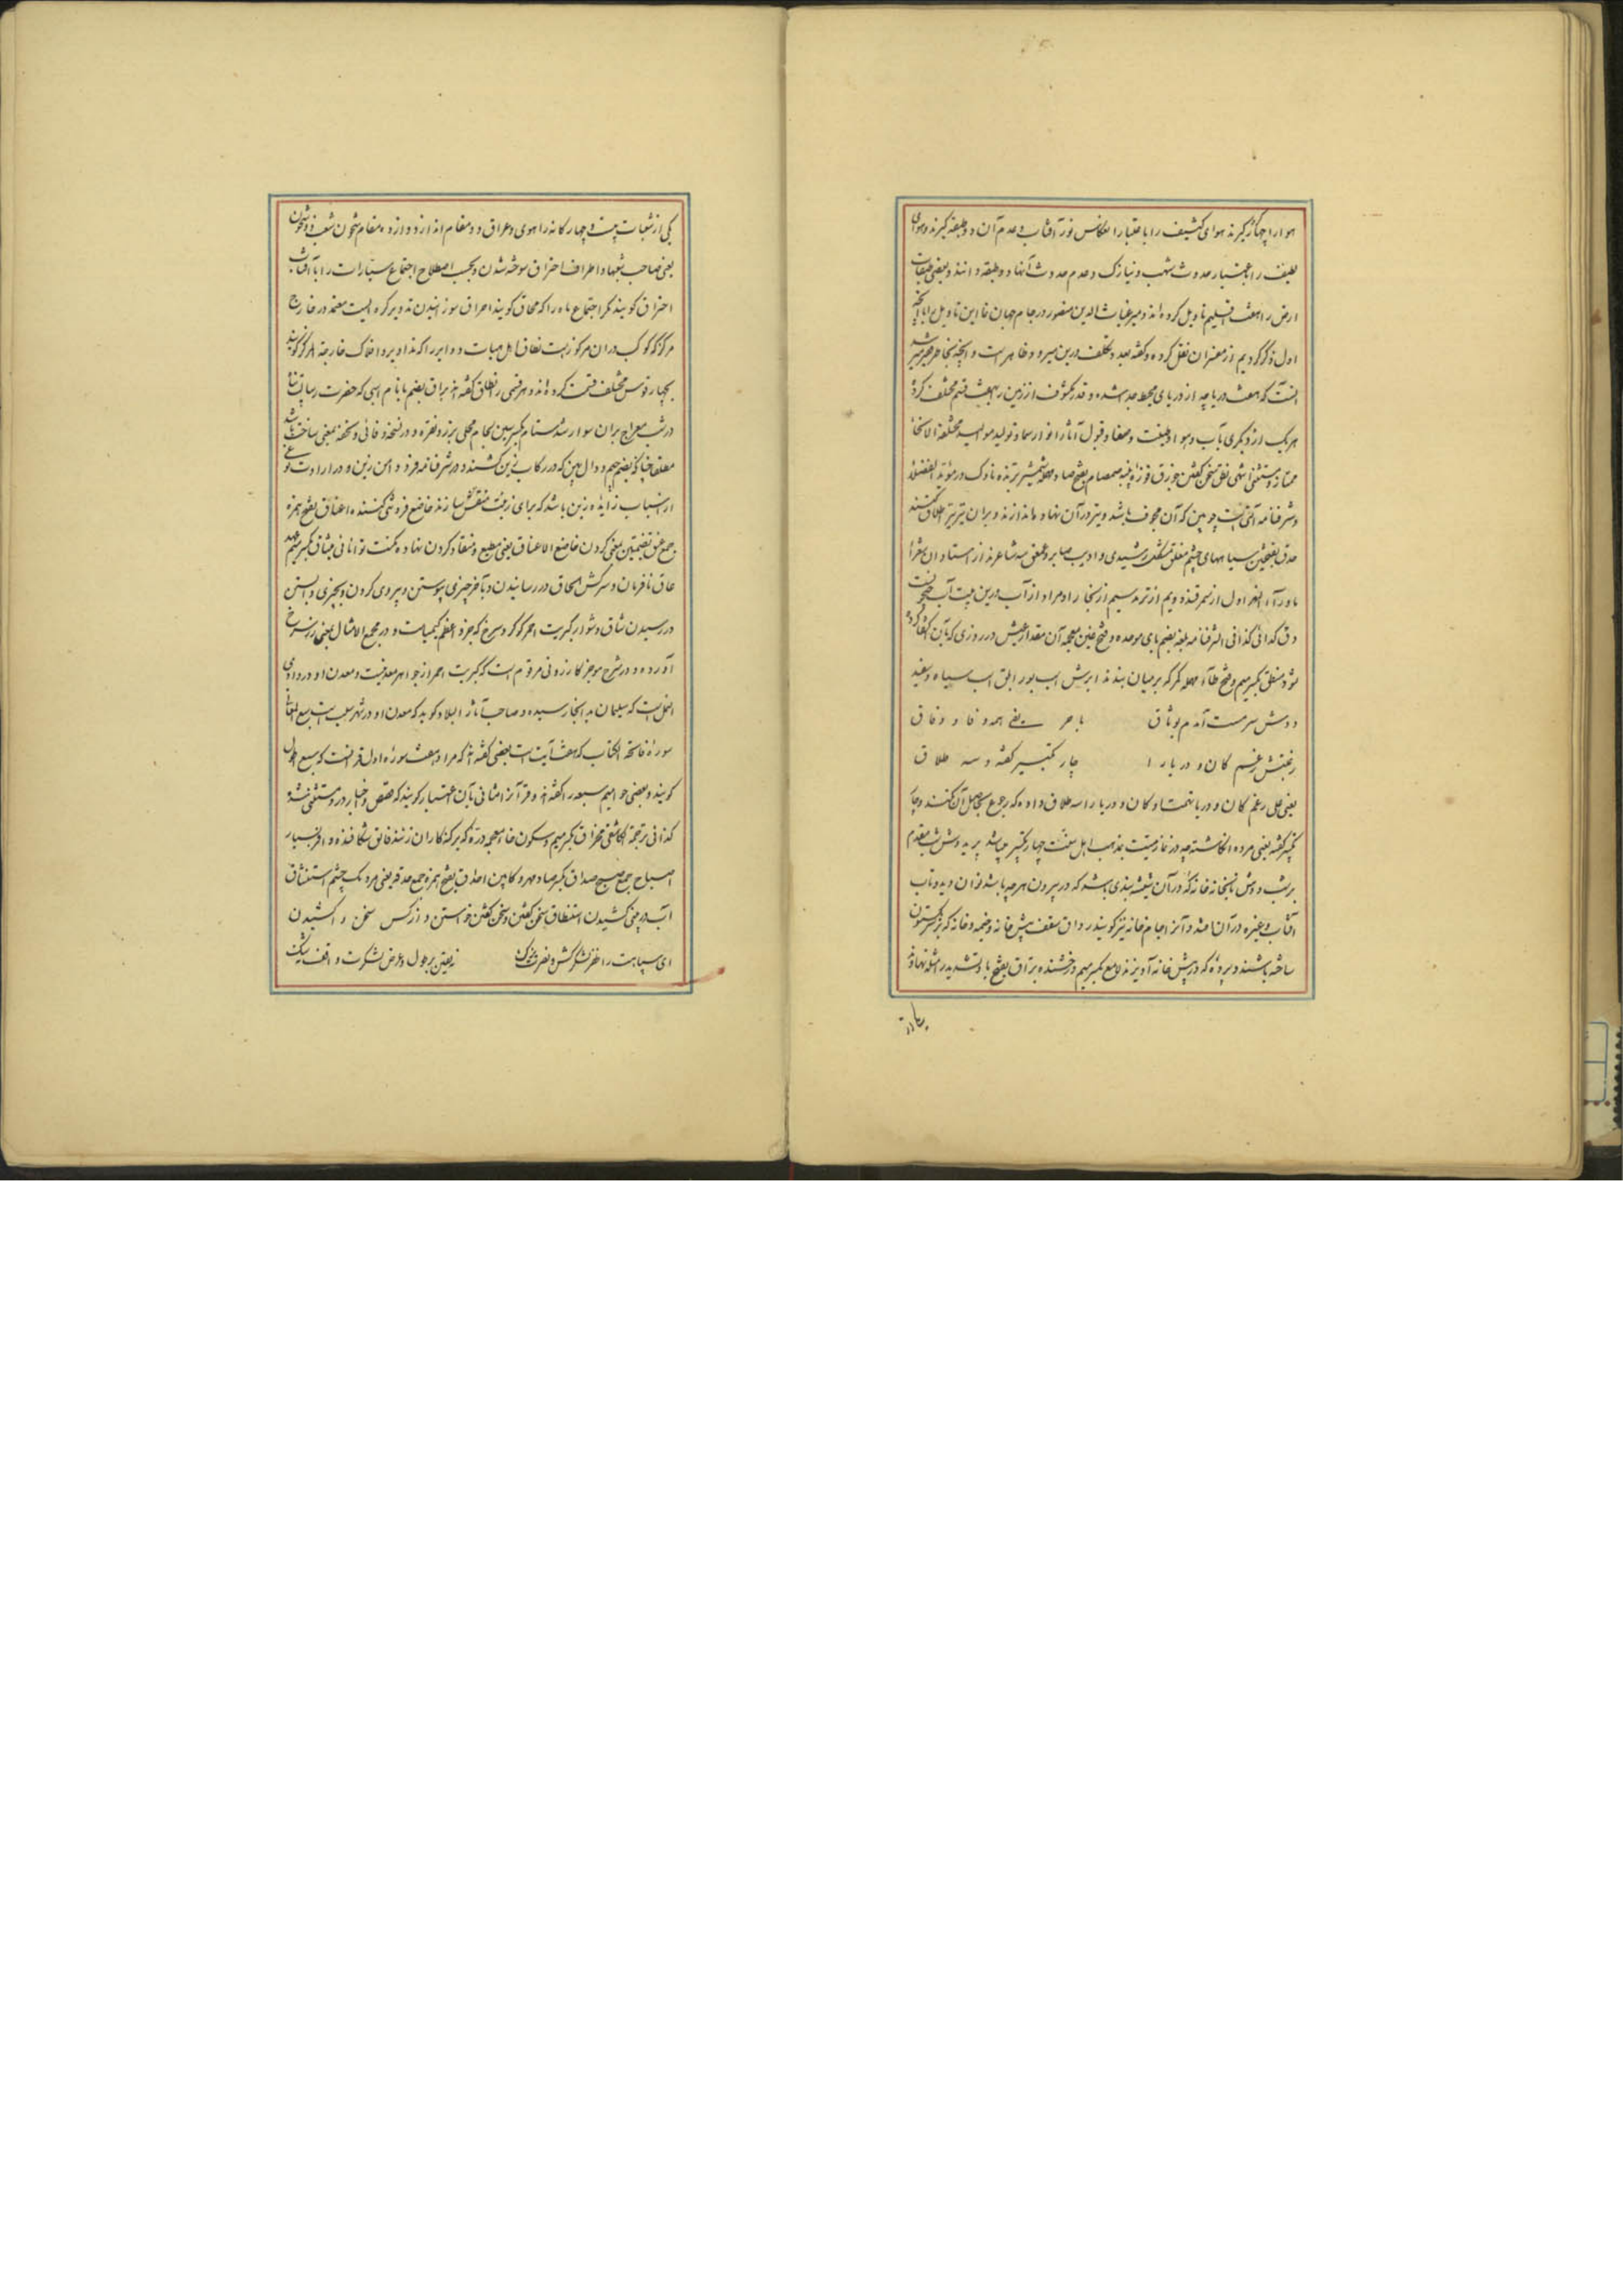 هوا را چهار گیرند هوای کثیف را باعتبار انعکاس نور آفتاب و عدم آن دو طبقه گیرند و هوای
لطیف را باعتبار حدوث شهب و نیازک و عدم حدوث آنها دو طبقه دانند و بعضی طبقات
ارض را بهفت اقلیم تاویل کرده اند و میر غیاث الدین منصور در جام جهان نما این تاویل را با آنچه
اول ذکر کردیم از مفسران نقل کرده و گفته بعد و تکلف درین میرود ظاهر است و آنچه بخاطر فقیر میرسد
آنست که هفت دریاچه از دریای محیط جدا شده و قدر مکشوف از زمین را بهفت قسم مختلف کرده
هر یک از دیگری بآب و هوا و طینت و صفا و قبول آثار انوار سما و تولید موالید مختلفة الانحا
ممتاز و مستثنی انتهی نطق سخن گفتن صمصام بفتح صاد مهمله شمشیر برنده ناوک در مؤید الفضلا
و شرفنامه آلتی است چوبین که آن مجوف باشد و تیر در آن نهاده اندازند و بر آن تیر نیز اطلاق کنند
حدق بفتحتین سیاهیهای چشم مغلق مشکل رشیدی و ادیب صابر و عمعق سه شاعرند از استادان شعرا
ماورآء النهر اول از سمرقند دویم از ترمذ سیم از بخارا و مراد از آب درین بیت آب جیحونست
دق گدائی کذا فی الشرفنامه بلغه بضم بای موحده و فتح غین معجمه آن مقدار عیش در روزی که بآن اکتفا کرده
شود منطق بکسر میم و فتح طاء مهمله کمر که بر میان بندند ابرش اسب بور ابلق اسب سیاه و سفید
دوش سرمست آمدم بوثاق با حریفی همه وفا و وفاق
رغبتش رغم کان و دریا را چار تکبیر گفته و سه طلاق
یعنی علی رغم کان و دریا همت او کان و دریا را سه طلاق داده که رجوع بی محلل آن نکنند و چار
تکبیر گفته یعنی مرده انگاشته چه در نماز میت بمذهب اهل سنت چهار تکبیر میباشد پریدوش شب مقدم
بر شب دوش تابخانه خانه که در آن شیشه بندی باشد که در بیرون هر چه باشد توان دید و تاب
آفتاب و غیره در آن افتد و آنرا جام خانه نیز گویند رواق سقف پیش خانه و خیمه و خانه که بر یک ستون
ساخته باشند و پرده که در پیش خانه آویزند لامع بکسر میم درخشنده براق بفتح با و تشدید را مثله نهاوند
یکی از شعبات بیست و چهارگانه راهوی و عراق دو مقام اند از دوازده مقام شجون شعب ذو شجون
یعنی صاحب شعبها و اطراف احتراق سوخته شدن و بحسب اصطلاح اجتماع سیارات را با آفتاب
احتراق گویند مگر اجتماع ماه را که محاق گویند احراق سوزانیدن تدویر کره ایست مغمد در خارج
مرکز که کوکب در آن مرکوز است نطاق اهل هیات دوایر را که تداویر و افلاک خارجة المرکز گویند
بچهار قوس مختلف قسمت کرده اند و هر قسمی را نطاق گفته اند براق بضم با نام اسبی که حضرت رسالت پناه
در شب معراج بر آن سوار شد ستام بکسر سین لجام محلی بزر و نقره و در نسخه وفائی و نسخه بمعنی ساخت باشد
معلق جناغ بضم جیم و دال زین که در رکاب زین کشند و در شرفنامه فرو دامن زین و در ارادت نوعی
از اسباب زاید زین باشد که برای زینت منقش سازند خاضع فروتنی کننده اعناق بفتح همزه
جمع عنق بضمتین بمعنی گردن خاضع الاعناق یعنی مطیع و منقاد گردن نهاده مکنت توانائی میثاق بکسر میم عهد
عاق نافرمان و سرکش الحاق در رسانیدن و بآخر چیزی پیوستن و پیروی کردن و بچیزی وابستن
در رسیدن شاق دشوار کبریت احمر گوگرد سرخ که جزو اعظم کیمیاست و در مجمع الامثال بمعنی زر سرخ
آورده و در شرح موجز کازرونی مرقوم است که کبریت احمر از جواهر معدنیست و معدن او در وادی
النمل است که سلیمان به آنجا رسیده و صاحب آثار البلاد گوید که معدن او در شهر سلیم است سبع المثانی
سوره فاتحة الکتاب که هفت آیت است بعضی گفته اند که مراد هفت سوره اول قرآنست که سبع طول
گویند و بعضی حوامیم سبعه را گفته اند و قرآن را مثانی بآن اعتبار گویند که قصص و اخبار در او مستثنی شده
کذا فی ترجمة الکاشفی مخراق بکسر میم و سکون خاء معجمه دره که بر گنه کاران زنند فائق شکافنده و افزون بسیار
اصباح جمع صبح صداق بکسر صاد مهر و کابین احداق بفتح همزه جمع حدقه یعنی مردمک چشم استنشاق
آب در بینی کشیدن استنطاق سخن گفتن و سخن گفتن خواستن و از کس سخن وا کشیدن
ای سپاهت را ظفر لشکر کش و نصرت یزک نه یقین بر طول و عرض لشکرت واقف نه شک